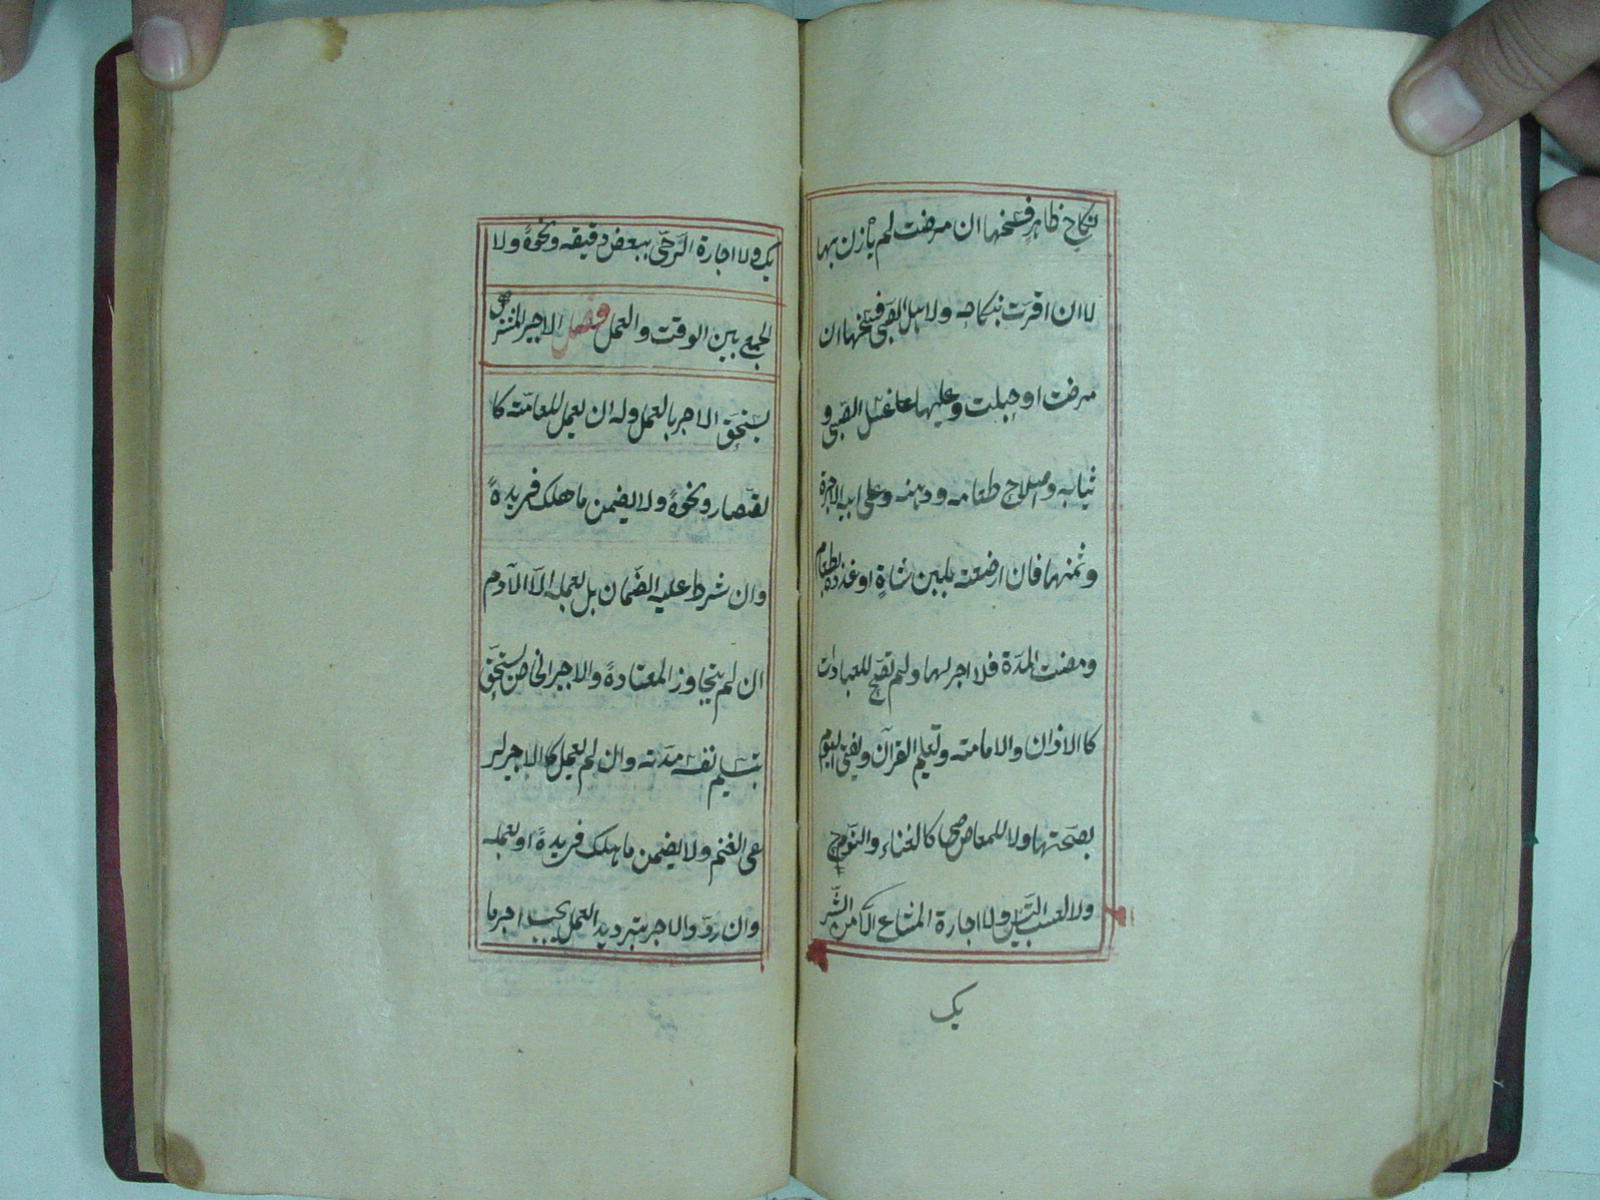 نكاح ظاهر فسخها ان مرضت لم يأذن بها
لا ان اقرت بنكاحه ولاهل الصّبى فسخها ان
مرضت او حبلت وعليها غسل الصّبى و
ثيابه واصلاح طعامه ودهنه وعلى ابيه الاجرة
وثمنها فان ارضعته بلبن شاةٍ او غذته بطعام
ومضت المدّة فلا اجر لها ولم تصحّ للعبادات
كالاذان والامامة وتعليم القرآن ويفتى اليوم
بصحّتها ولا للمعاصى كالغناء والنّوح
ولا لعسب التّيس ولا اجارة المشاع الّا من الشّر
يك
يك ولا اجارة الرّحى ببعض دقيقه ونحوهً ولا
الجمع بين الوقت والعمل فصل الاجير المشترك
يستحقّ الاجر بالعمل وله ان يعمل للعامّة كا
لقصّار ونحوهً ولا يضمن ما هلك فى يدهً
وان شرط عليه الضّمان بل بعمله الّا الآدمى
ان لم يتجاوز المعتادهً والاجير الخاص يستحقّ
بتسليم نفسه مدّته وان لم يعمل كالاجير لر
عى الغنم ولا يضمن ما هلك فى يدهً او بعمله
وان ردّد الاجر بترديد العمل يجب اجر ما